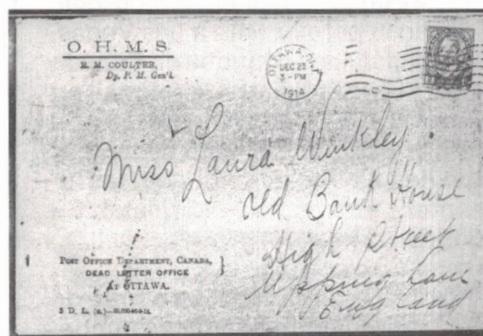 O. H. M. S.
R. M. COULTER,
Dy. P. M. Gen'l.
OTTAWA, ONT.
DEC 23
3-PM
1914
Miss Laura Winkley
Old Bank House
High Street
England
POST OFFICE DEPARTMENT, CANADA,
DEAD LETTER OFFICE
AT OTTAWA.